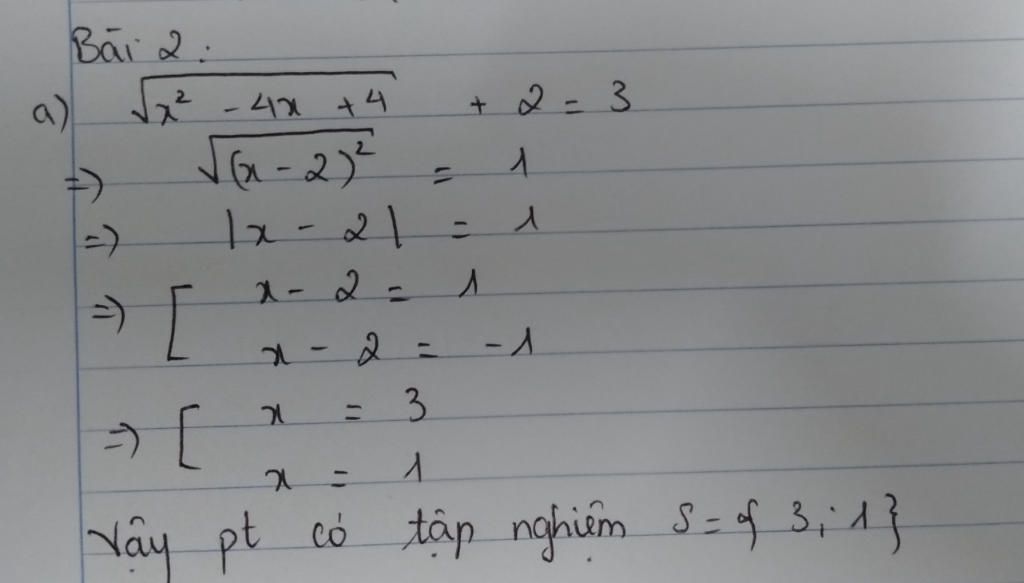 Bài 2:
a) √(x² - 4x + 4) + 2 = 3
=) √((x - 2)²) = 1
=) |x - 2| = 1
=) [ x - 2 = 1
x - 2 = -1
=) [ x = 3
x = 1
Vậy pt có tập nghiệm S = { 3; 1 }